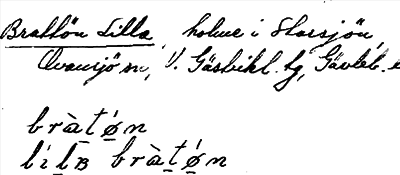 Brattön Lilla, holme i Storsjön,
Ovansjö sn, V. Gästrikl. hg, Gävleb. l
bràtǿn
lílʙ bràtǿn